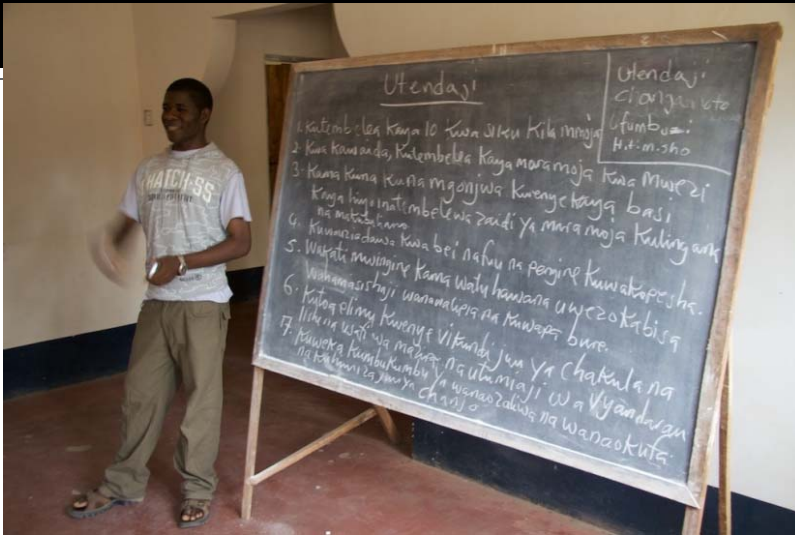 HATCH-55
Utendaji
Utendaji
Changamoto
Ufumbuzi
Hitimisho
1. Kutembelea Kaya 10 Kwa siku Kila mmoja
2. Kwa Kawaida, Kutembelea Kaya mara moja Kwa Mwezi
3. Kama Kuna Kuna mgonjwa Kwenye Kaya basi
Kaya hiyo inatembelewa zaidi ya mara moja Kulingana
na matatizo
4. Kuwauzia dawa Kwa bei nafuu na pengine Kuwakopesha.
5. Wakati mwingine Kama watu hawana uwezo Kabisa
Wahamasishaji wanawalipia na Kuwapa bure.
6. Kutoa elimu Kwenye Vikundi juu ya Chakula na
lishe na usafi wa mazingira na utumiaji wa Vyandarua
7. Kuweka Kumbukumbu ya wanaozaliwa na wanaokufa
na Kuhimiza juu ya Chanjo